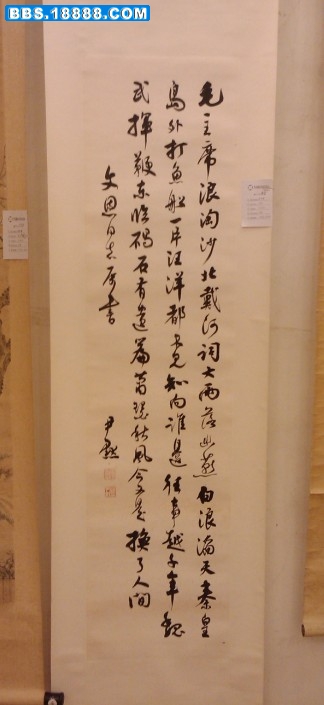 BBS.18888.COM
毛主席浪淘沙北戴河詞大雨落幽燕白浪滔天秦皇
島外打魚船一片汪洋都不見知向誰邊往事越千年魏
武揮鞭東臨碣石有遺篇蕭瑟秋風今又是換了人間
文思同志属書
尹默